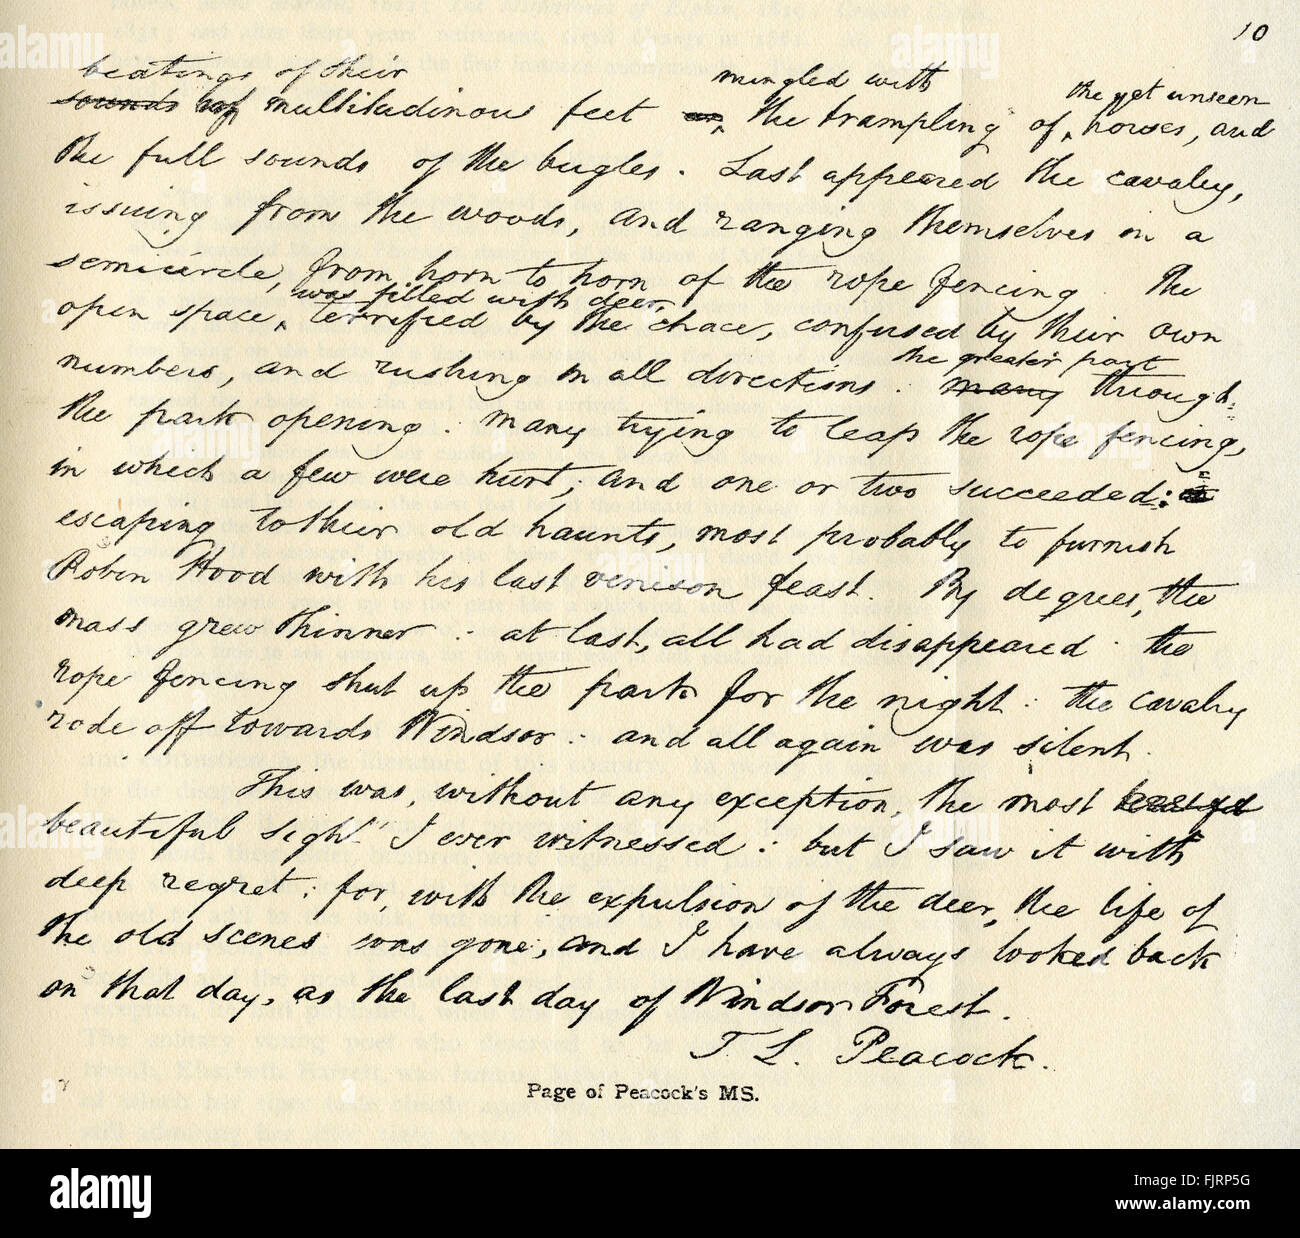 10
beatings of their mingled with the yet unseen
sounds of multitudinous feet the trampling of horses, and
the full sounds of the bugles. Last appeared the cavalry,
issuing from the woods, and ranging themselves in a
semicircle, from horn to horn of the rope fencing. The
was filled with deer,
open space, terrified by the chace, confused by their own
the greater part
numbers, and rushing in all directions: many through
the park opening: many trying to leap the rope fencing,
in which a few were hurt; and one or two succeeded:
escaping to their old haunts, most probably to furnish
Robin Hood with his last venison feast. By degrees, the
mass grew thinner: at last, all had disappeared: the
rope fencing shut up the park for the night: the cavalry
rode off towards Windsor: and all again was silent.
This was, without any exception, the most
beautiful sight I ever witnessed: but I saw it with
deep regret: for, with the expulsion of the deer, the life of
the old scenes was gone, and I have always looked back
on that day, as the last day of Windsor Forest.
T. L. Peacock.
Page of Peacock's MS.
alamy
Image ID: FJRP5G
www.alamy.com